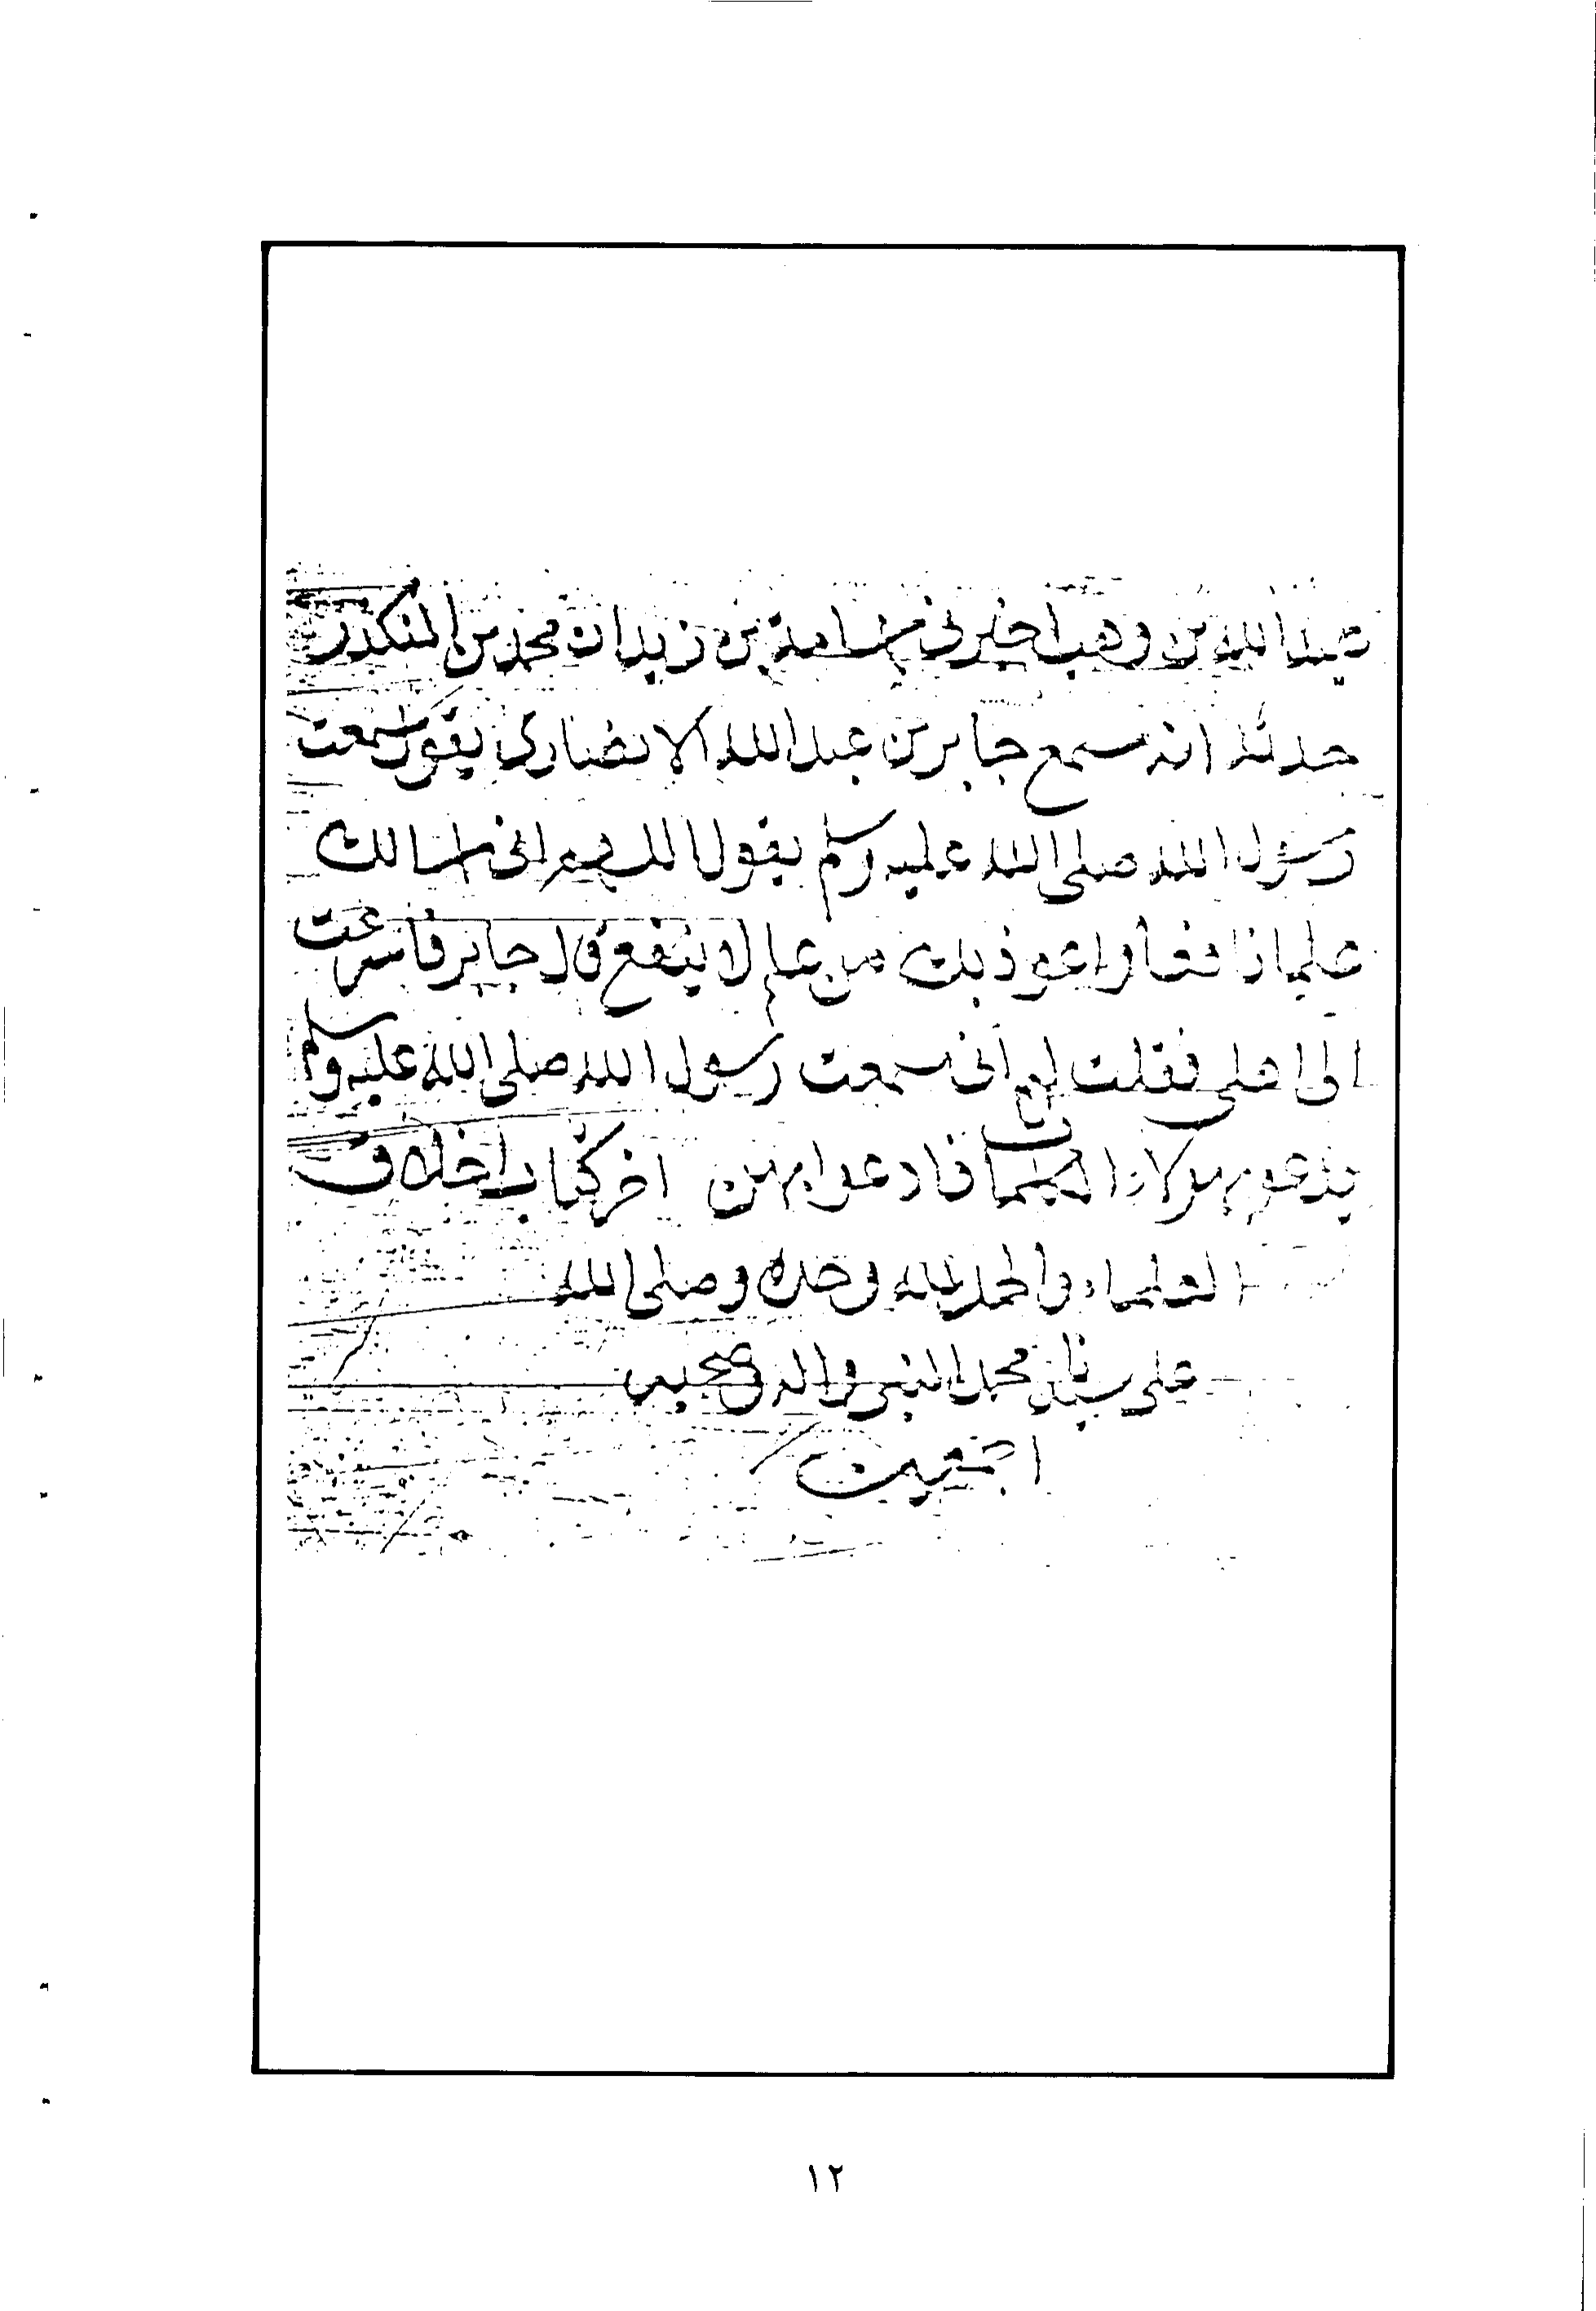 عبد الله بن وهب اخبرنى اسامة بن زيد ان محمد بن المنكدر
حدثه انه سمع جابر بن عبد الله الانصارى يقول سمعت
رسول الله صلى الله عليه وسلم يقول اللهم انى اسالك
علما نافعا واعوذ بك من علم لا ينفع قال جابر فاسرعت
الى اهلى فقلت لهم انى سمعت رسول الله صلى الله عليه وسلم
يدعو بهولاء الكلمات فادعوا بهن اخر كتاب اخلاق
العلماء والحمد لله وحده وصلى الله
على سيدنا محمد النبى واله وصحبه
اجمعين
١٢